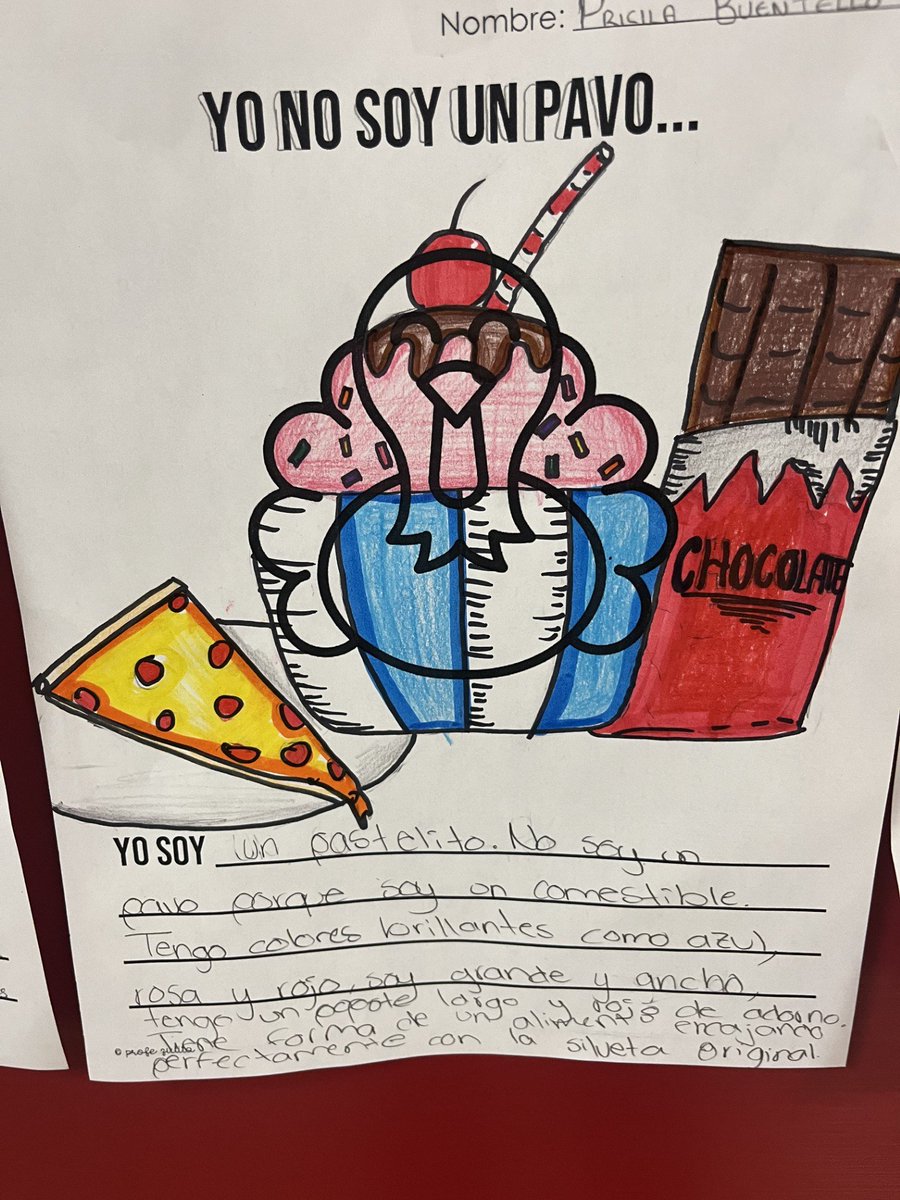 Nombre: PRICILA BUENTELLO
YO NO SOY UN PAVO...
CHOCOLATE
YO SOY un pastelito. No soy un
pavo porque soy un comestible.
Tengo colores brillantes como azul,
rosa y rojo, soy grande y ancho,
tengo un popote largo y de adorno.
Tiene forma de un alimento encajando
© profe
perfectamente con la silueta original.